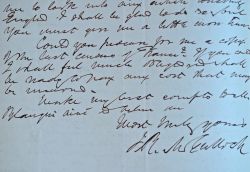 age to
any other
England I shall be glad
You must give me a little more time
Could you procure for me a copy
of the last Census of France? If you can
I shall feel much obliged & shall
be ready to pay any cost that may
be incurred.
Make my best compts to Mr
Blanqui and believe me
Most truly yours
J.R. McCulloch